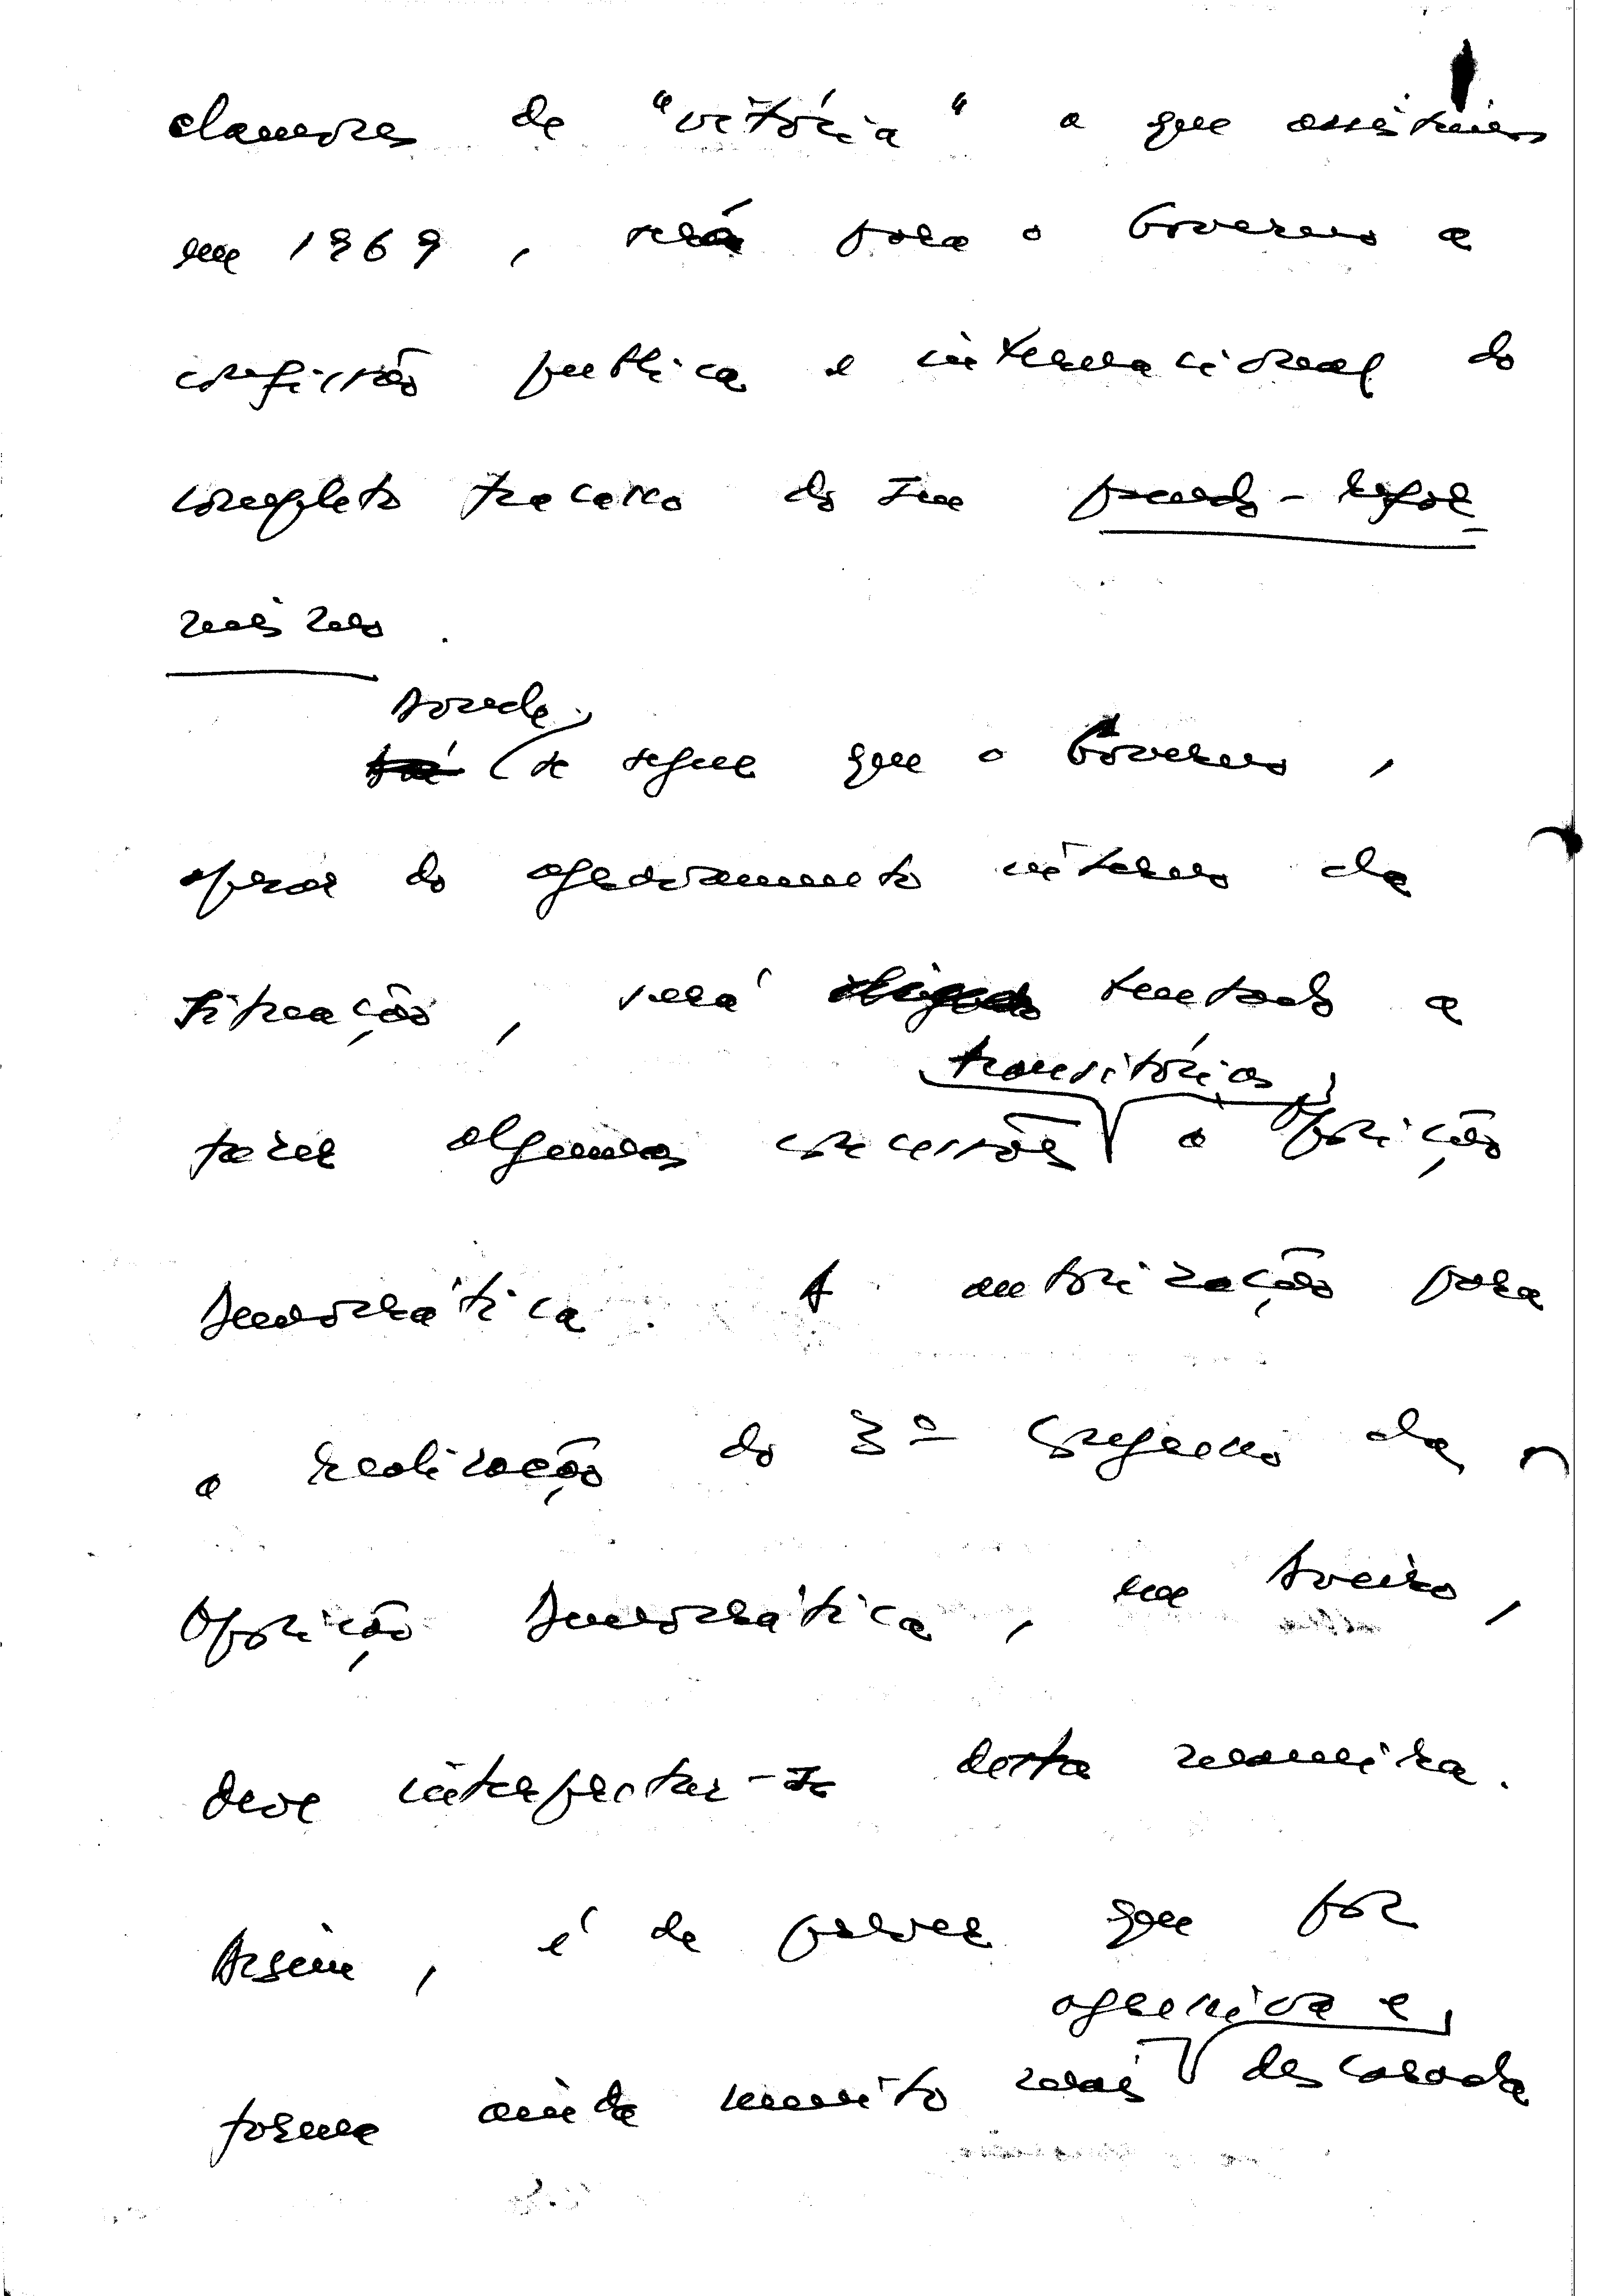 clamores de "vitória" a que assistimos
em 1969, será para o Governo a
confissão publica e internacional do
completo fracasso do seu pseudo-refor-
mismo.
Donde
se segue que o Governo,
apesar do agravamento interno da
situação, será tentado a
transitórias
fazer algumas concessões à Oposição
Democrática. A autorização para
a realização do 3º Congresso da
Oposição Democrática, em Aveiro,
deve interpretar-se desta maneira.
Assim, é de prever que por
agressiva e
forma ainda muito mais descarada